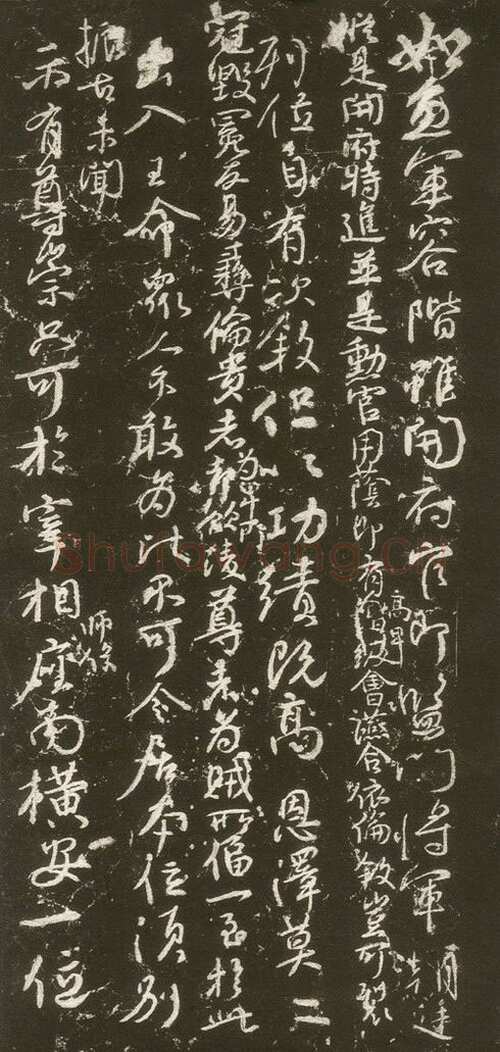 如魚軍容階雖開府官即監門將軍朝廷
縱是開府特進並是勳官用蔭即有高卑會讌合依倫敘豈可裂
列位自有次敘但以功績既高恩澤莫二
冠毀冕反易彝倫貴者為卑所凌尊者為賊所偪一至於此
出入王命眾人不敢為比不可令居本位須別
振古未聞
示有尊崇只可於宰相師保座南橫安一位
Shufawang.CN